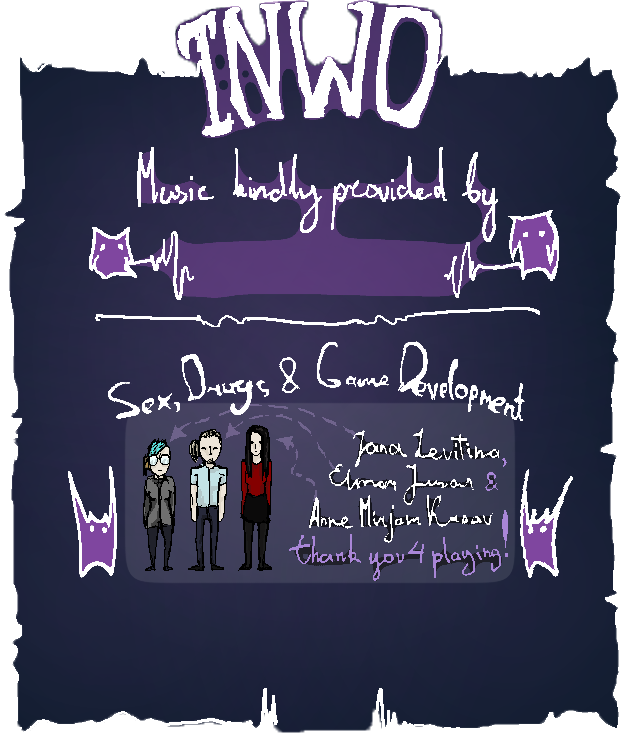 INWO
Music kindly provided by
Sex, Drugs & Game Development
Jana Levitina,
&
Anne Mirjam
thank you 4 playing!